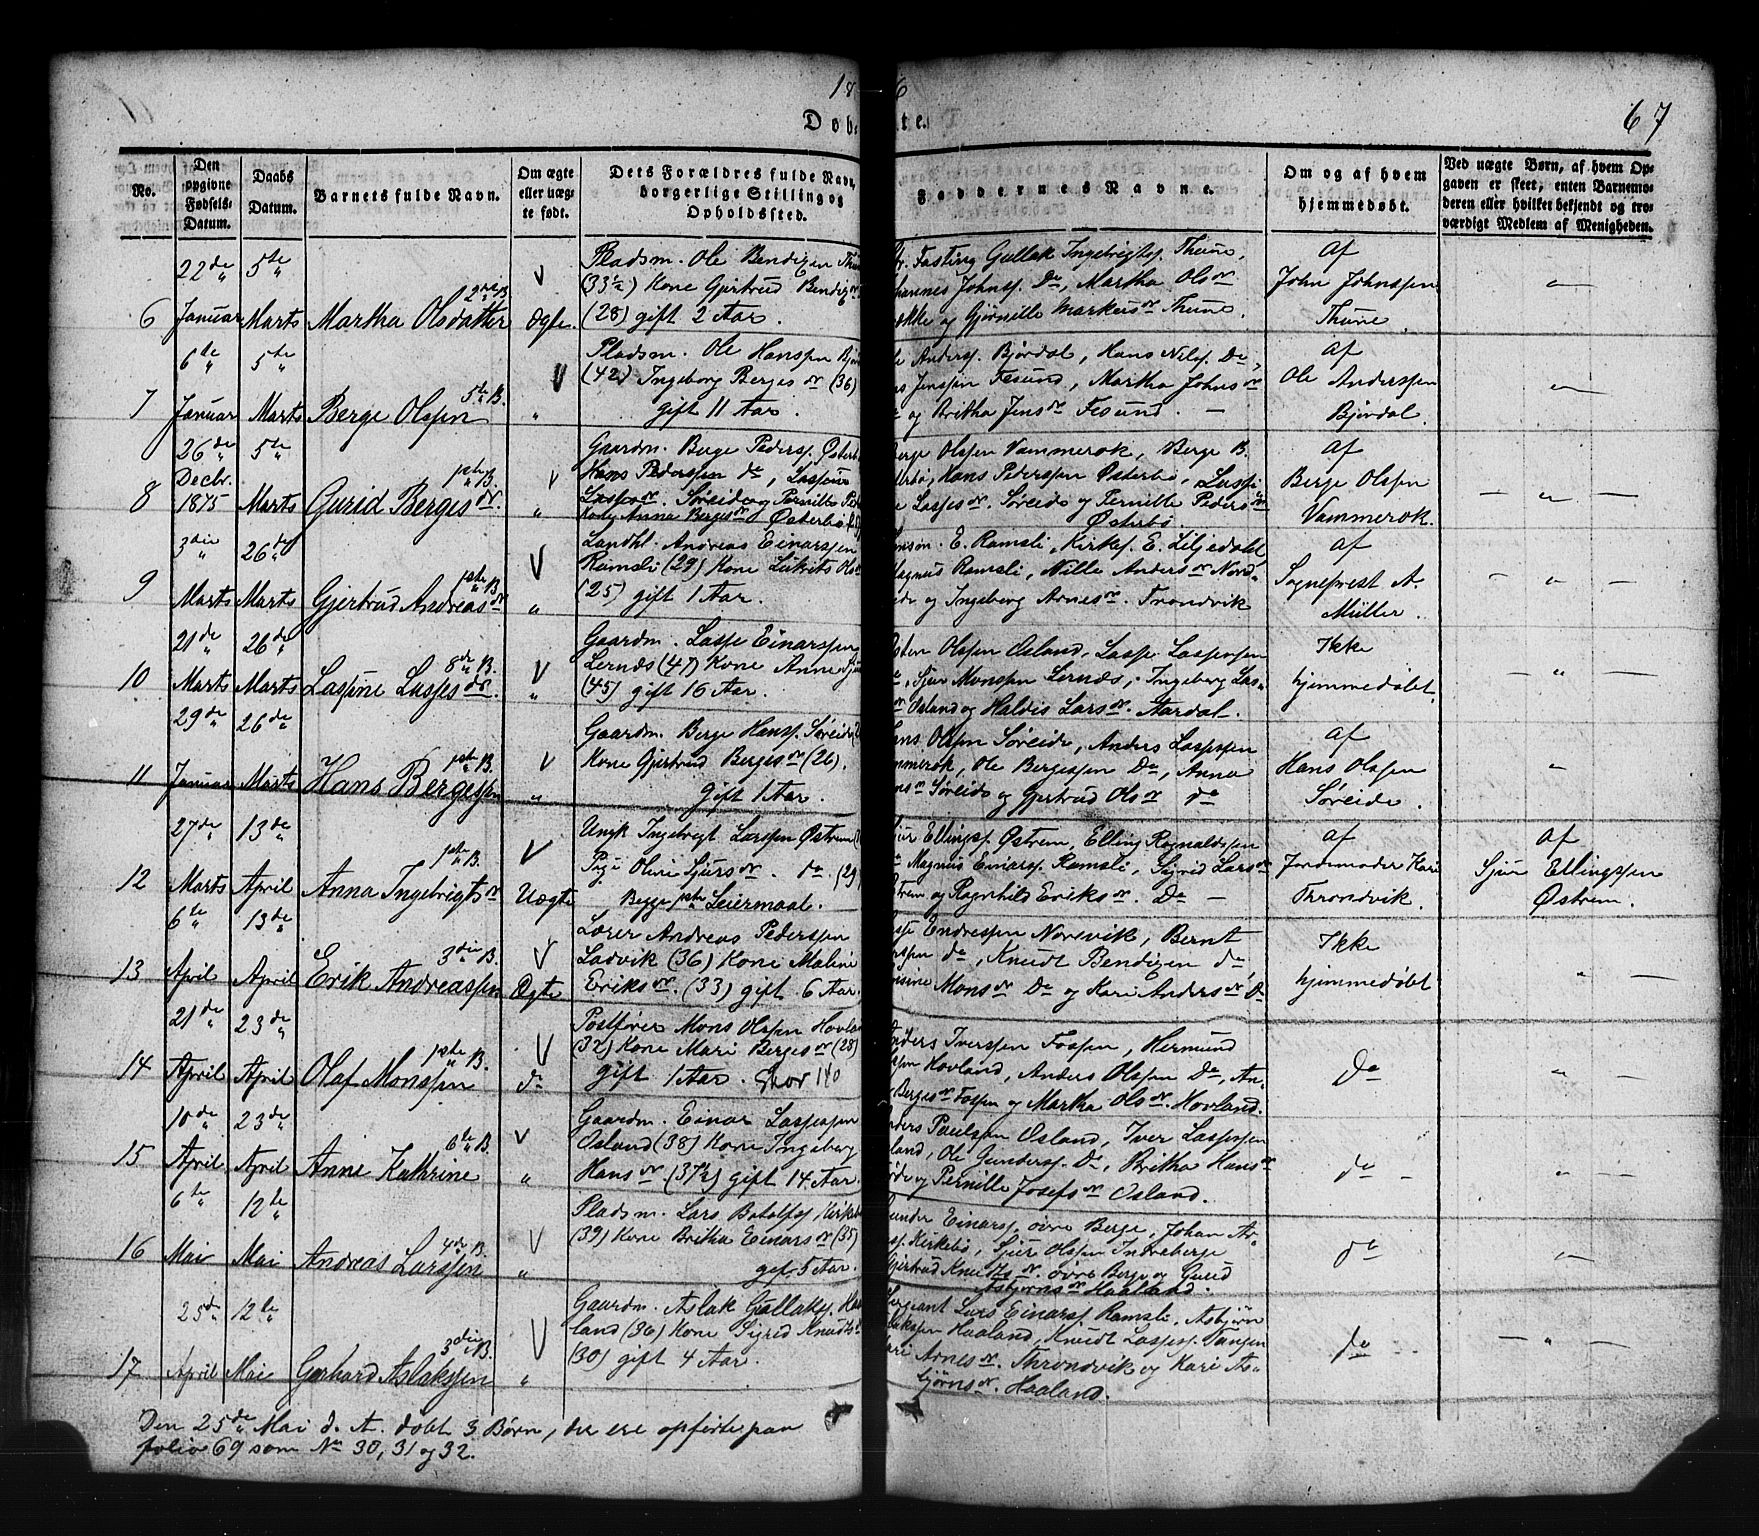 18 6
67
Døb te.
No.
Den opgivne Fødsels-Datum.
Daabs Datum.
Barnets fulde Navn.
Om ægte eller uægte født.
Dets Forældres fulde Navn, borgerlige Stilling og Opholdssted.
Faddernes Navne.
Om og af hvem hjemmedøbt.
Ved uægte Børn, af hvem Opgaven er skeet, enten Barnemoderen eller hvilket bekjendt og troværdigt Medlem af Menigheden.
6
22de Januar
5te Marts
Martha Olsdatter
Ægte
Pladsm. Ole Bendixen
(33½) Kone Gjertrud
(28) gift 2 Aar.
Fasting Gullak Ingebrigts. Thune,
Johns. De, Martha Ols dr
og Markus dr Thune
af
John Johnssen
Thune.
7
6te Januar
5te Marts
5te B.
Berge Olssen
"
Pladsm. Ole Hanssen
(42) Ingeborg Berges dr (36)
gift 11 Aar.
Anders. Bjordal, Hans Nils. De,
Jenssen Fesund, Martha Johns dr
og Britha Jens dr Fesund. —
af
Ole Anderssen
Bjordal.
8
26de Decbr. 1875
5te Marts
1ste B.
Gurid Berges dr.
"
Gaardm. Berge Peders. Østerbø
Hans Pederssen de,
Søreide og Pernille
Anna Berges dr Østerbø
Olssen Vammerok, Berge B.
Hans Pederssen Østerbø,
Lasses dr. Søreide og Pernille Peders dr
Østerbø.
af
Berge Olssen
Vammerok.
— " —
9
3die Marts
26de Marts
1ste B.
Gjertrud Andreas dr
"
Landhl. Andreas Einarssen
Ramsli (29) Kone
(25) gift 1 Aar.
E. Ramsli, Kirkes. E. Liljedahl
Magnus Ramsli, Nille Anders dr
og Ingeborg Arnes dr. Trondvik
af
Sogneprest A
Müller.
— " —
10
21de Marts
26de Marts
8de B.
Lassine Lasses dr.
"
Gaardm. Lasse Einarssen
Lernæs (47) Kone Anne
(45) gift 16 Aar.
Olssen Osland, Lasse Lassessen
Sjur Monssen Lernæs, Ingeborg Las-
Osland og Haldis Lars dr. Aardal.
Ikke
hjemmedøbt
— " —
11
29de Januar
26de Marts
1ste B.
Hans Bergessen
"
Gaardm. Berge Hans. Søreide
Kone Gjertrud Berges dr (26).
gift 1 Aar.
Olssen Søreide, Anders Lassessen
Ole Bergessen De, Anna
Søreide og Gjertrud Ols dr de
af
Hans Olssen
Søreide.
12
27de Marts
13de April
1ste B.
Anna Ingebrigts dr
Uægte
Ungk. Ingebrigt Larssen Østrem
Pige Oline Sjurs dr. do. (29)
Begges 1ste Leiermaal.
Ellings. Østrem, Elling Rognaldssen
Magnus Einars. Ramsli, Sigrid Lars dr
og Ragnhild Eriks dr. De —
af
Jordemoder Kari
Throndvik.
af
Sjur Ellingssen
Østrem.
13
6te April
13de April
3die B.
Erik Andreassen
Ægte
Lærer Andreas Pederssen
Ladvik (36) Kone Maline
Eriks dr. (33) gift 6 Aar.
Endressen Norevik, Bernt
de, Knudt Bendixen de,
Mons dr De og Kari Anders dr, De
Ikke
hjemmedøbt
14
21de April
23de April
1ste B.
Olaf Monssen
do
Postfører Mons Olssen Hovland
(32) Kone Mari Berges dr (28)
gift 1 Aar.
Iverssen Fossen, Hermund
Hovland, Anders Olssen De, An-
Berges dr Fossen og Martha Ols dr. Hovland.
Do
" —
15
10de April
23de April
6te B.
Anne Kathrine
"
Gaardm. Einar Lassessen
Osland (38) Kone Ingeborg
Hans dr. (37½) gift 14 Aar.
Paulsen Osland, Iver Lassessen
Ole Gunders. De, Britha Hans dr
og Pernille Josefs dr Osland.
do
" —
16
6te Mai
12te Mai
4de B.
Andreas Larssen
"
Pladsm. Lars Botolfs.
(39) Kone Britha Einars dr (35)
gift 5 Aar.
Einars. øvre Berge, Johan
Kirkebø, Sjur Olssen Indreberge
Gjertrud Knudts dr. øvre Berge og Gurid
Asbjørns dr Haaland.
do
17
25de April
12te Mai
3die B.
Gerhard Aslakssen
"
Gaardm. Aslak Gullaks. Haa-
land (36) Kone Sigrid Knudts
(30) gift 4 Aar.
Sergeant Lars Einars. Ramsli, Asbjørn
Haaland, Knudt Lasses. Tangen
Arnes dr. Throndvik og Kari As-
bjørns dr. Haaland.
do
— " —
Den 25de Mai d. A. døbt 3 Børn, der ere opførte paa
folio 69 som No 30, 31 og 32.